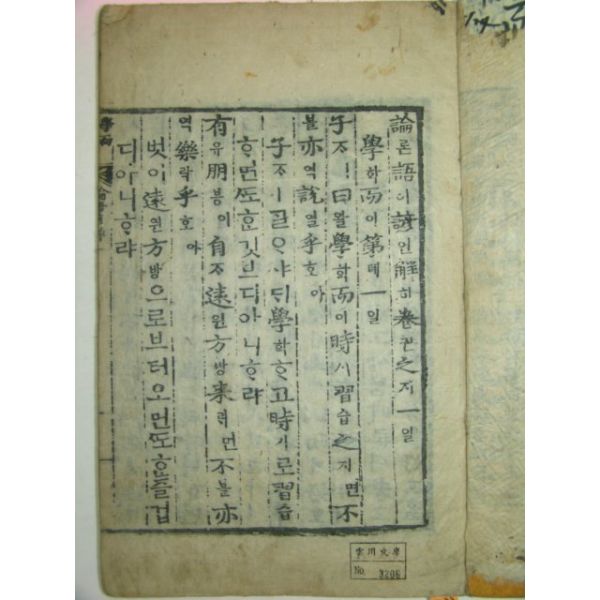 論론語어諺언解ᄒᆡ卷권之지一일
學ᄒᆞᆨ而이第뎨一일
子ᄌᆞㅣ曰왈學ᄒᆞᆨ而이時시習습之지면不
블亦역說열乎호아
子ᄌᆞㅣᄀᆞᆯᄋᆞ샤ᄃᆡ學ᄒᆞᆨᄒᆞ고時시로習습
ᄒᆞ면ᄯᅩᄒᆞᆫ깃브디아니ᄒᆞ랴
有유朋븡이自ᄌᆞ遠원方방來ᄅᆡ면不블亦
역樂락乎호아
벗이遠원方방으로브터오면ᄯᅩᄒᆞᆫ즐겁
디아니ᄒᆞ랴
No. 3206